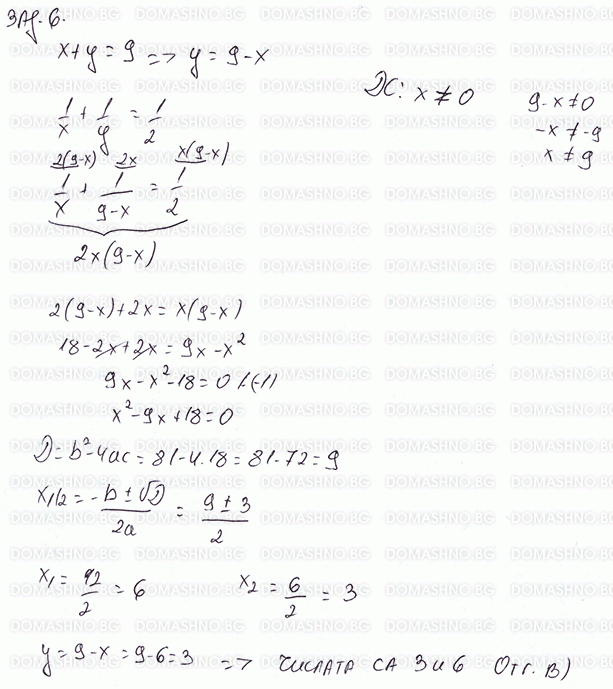 Зад. 6.
x+y=9 => y=9-x
ДС: x≠0
9-x≠0
-x≠-9
x≠9
1/x + 1/y = 1/2
2(9-x) 2x x(9-x)
1/x + 1/(9-x) = 1/2
2x(9-x)
2(9-x)+2x=x(9-x)
18-2x+2x=9x-x²
9x-x²-18=0 /.(-1)
x²-9x+18=0
D=b²-4ac=81-4.18=81-72=9
x1/2 = (-b±√D)/2a = (9±3)/2
x₁ = 12/2 = 6 x₂ = 6/2 = 3
y=9-x=9-6=3 => числата са 3 и 6 Отг. В)
DOMASHNO.BG